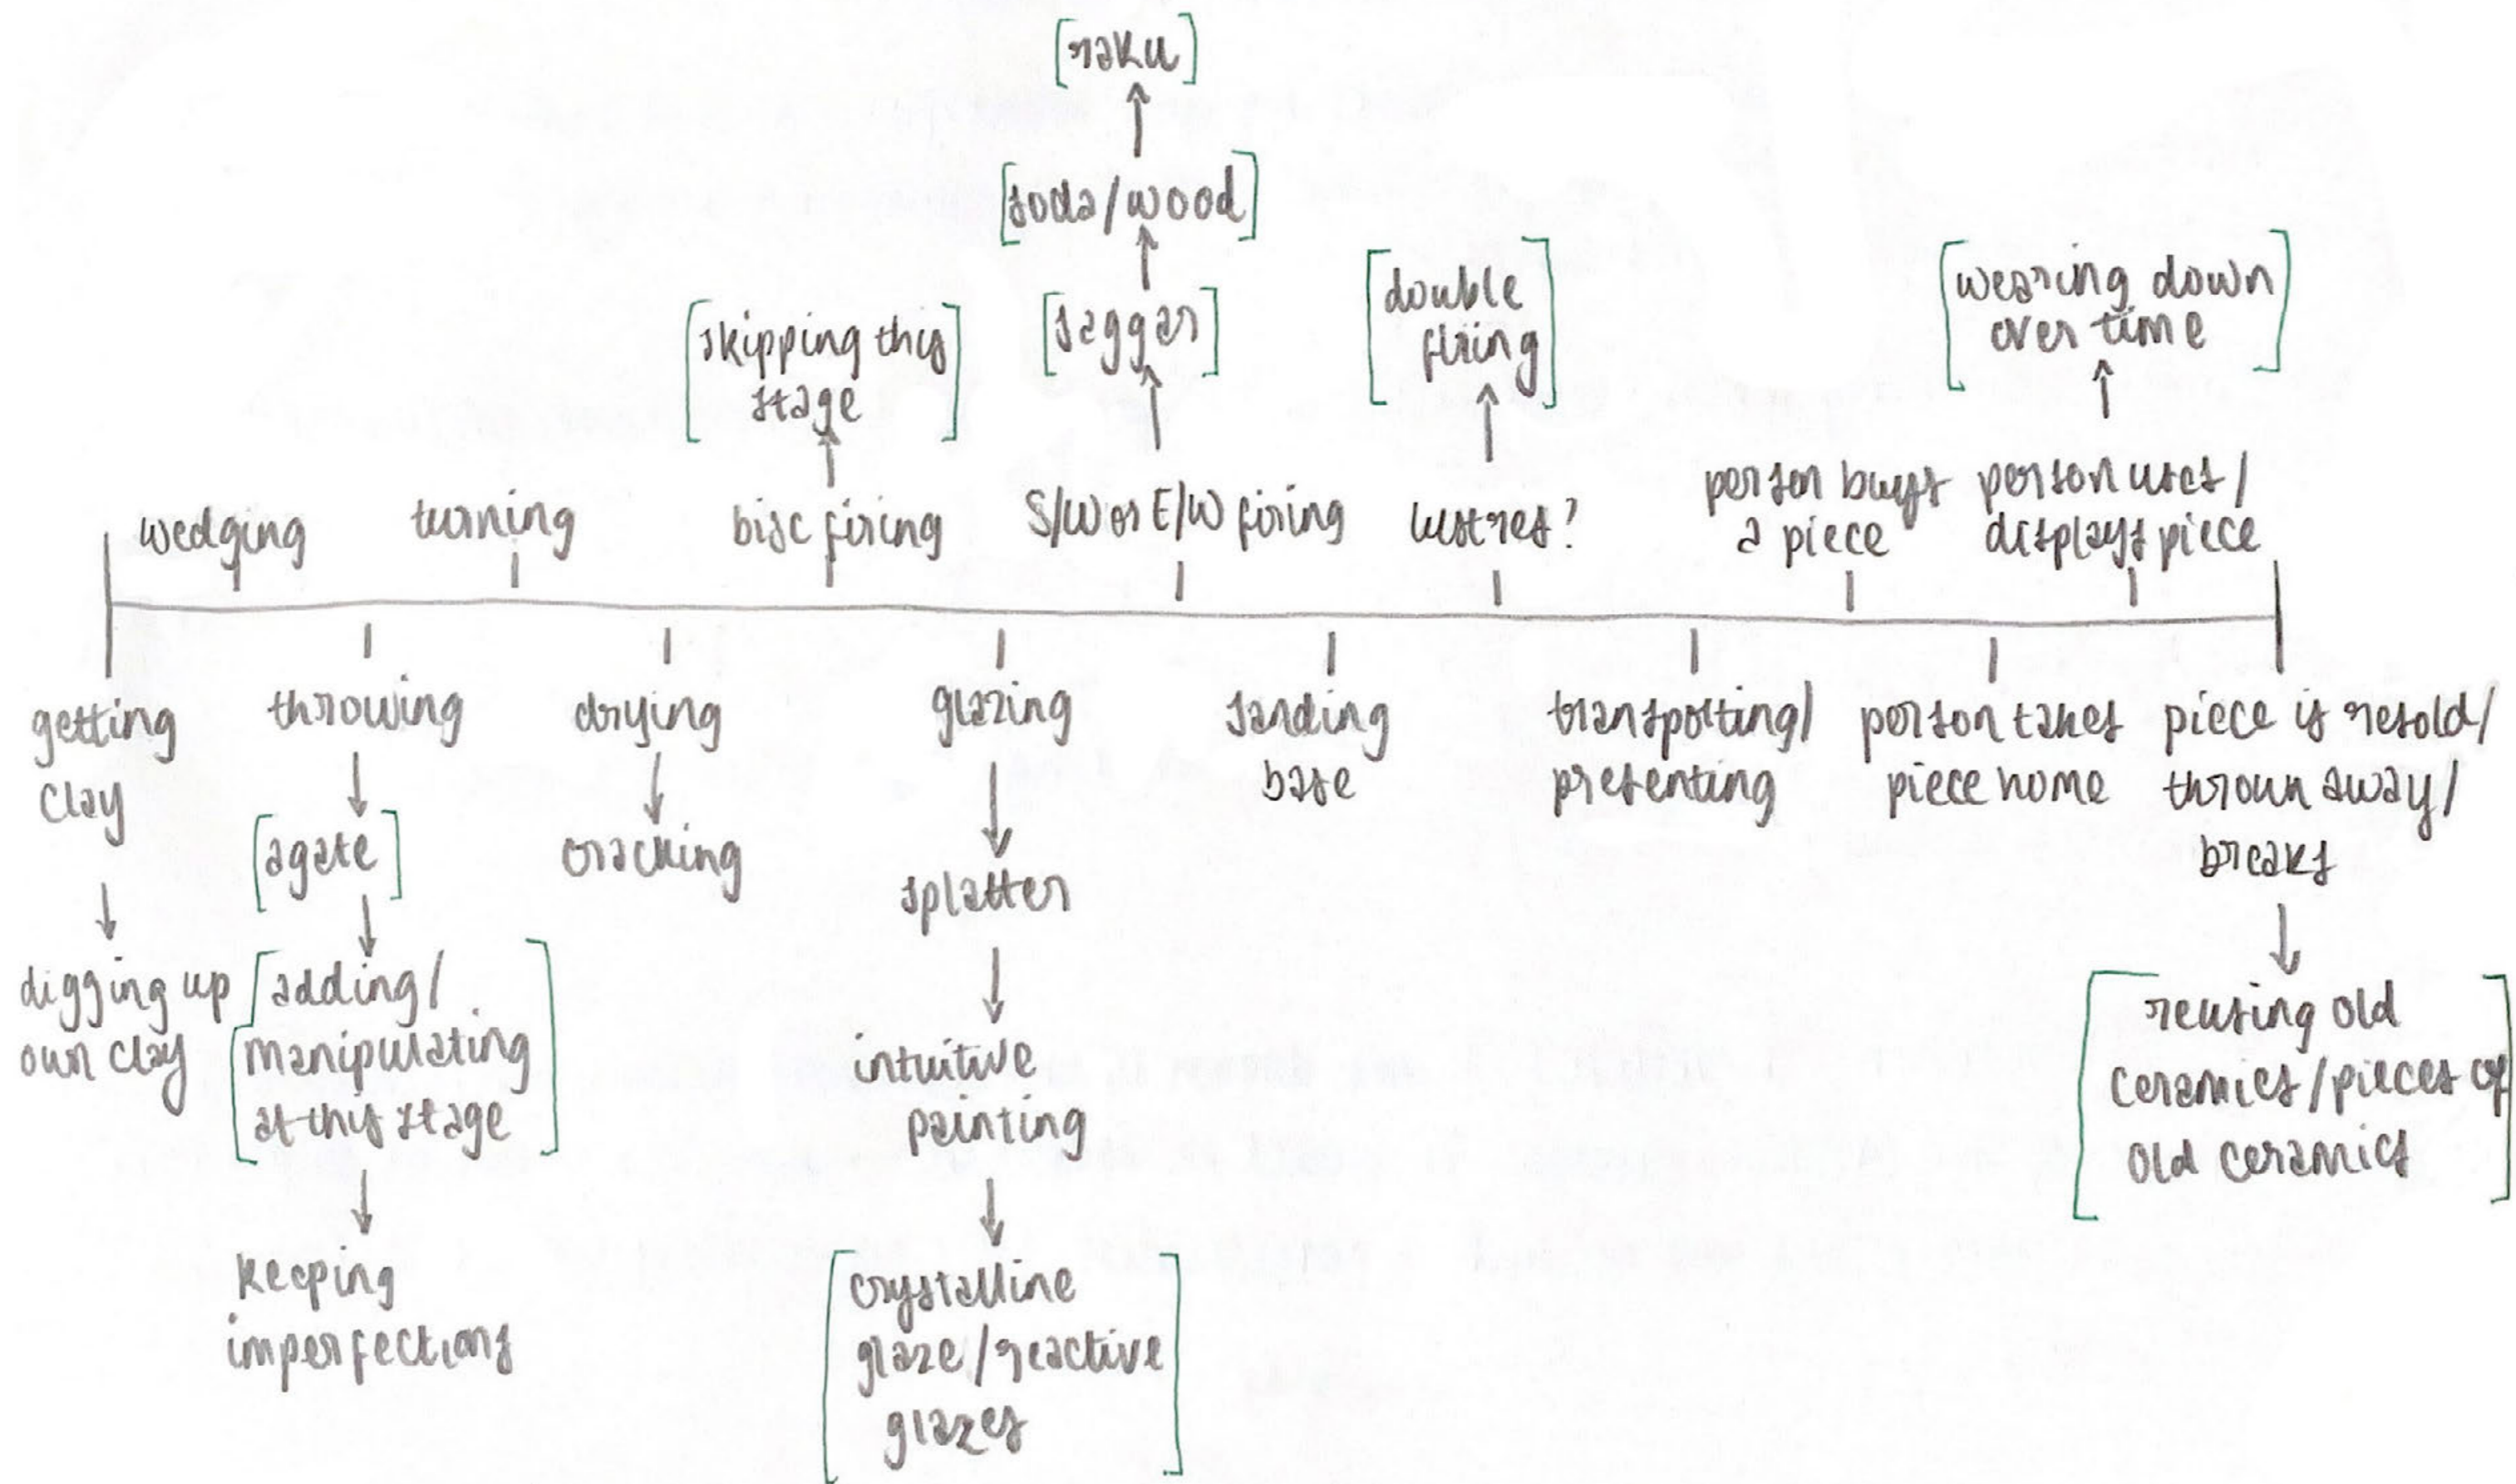 [raku]
[soda/wood]
[sagger]
[skipping this
stage]
[double
firing]
[wearing down
over time]
wedging
turning
bisc firing
S/W or E/W firing
lustres?
person buys
a piece
person uses/
displays piece
getting
clay
digging up
own clay
throwing
[agate]
[adding/
manipulating
at this stage]
keeping
imperfections
drying
cracking
glazing
splatter
intuitive
painting
[crystalline
glaze/reactive
glazes]
sanding
base
transporting/
presenting
person takes
piece home
piece is resold/
thrown away/
breaks
[reusing old
ceramics/pieces of
old ceramics]